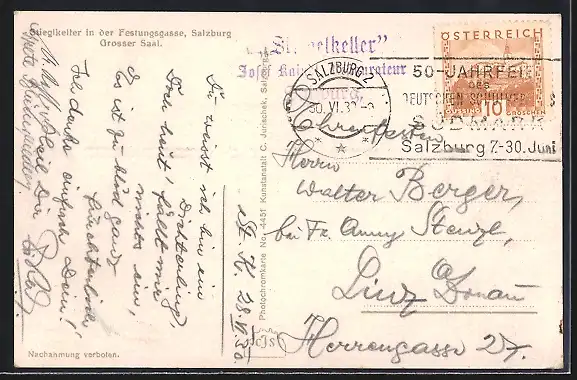 Stieglkeller in der Festungsgasse, Salzburg
Grosser Saal.
"Stieglkeller"
Josef Rainer, Restaurateur
Salzburg
SALZBURG 2
30. VI. 30
ÖSTERREICH
10 GROSCHEN
50-JAHRFEIER
DES
DEUTSCHEN SCHULVER
SÜDMARK
Salzburg 7.-30. Juni
Ehrenfesten
Herrn
Walter Berger,
bei Fr. Anny Stenzl,
Linz a/Donau
Herrengasse 27.
Du weisst ich bin ein
Dichterling,
Doch heut' fällt mir
nichts ein,
Es ist zu blöd ganz
fürchterlich
Ich denke einfach Dein!
28. VI. 30
Photochromkarte No. 4451 Kunstanstalt C. Jurischek, Salzburg
CJS
Nachahmung verboten.